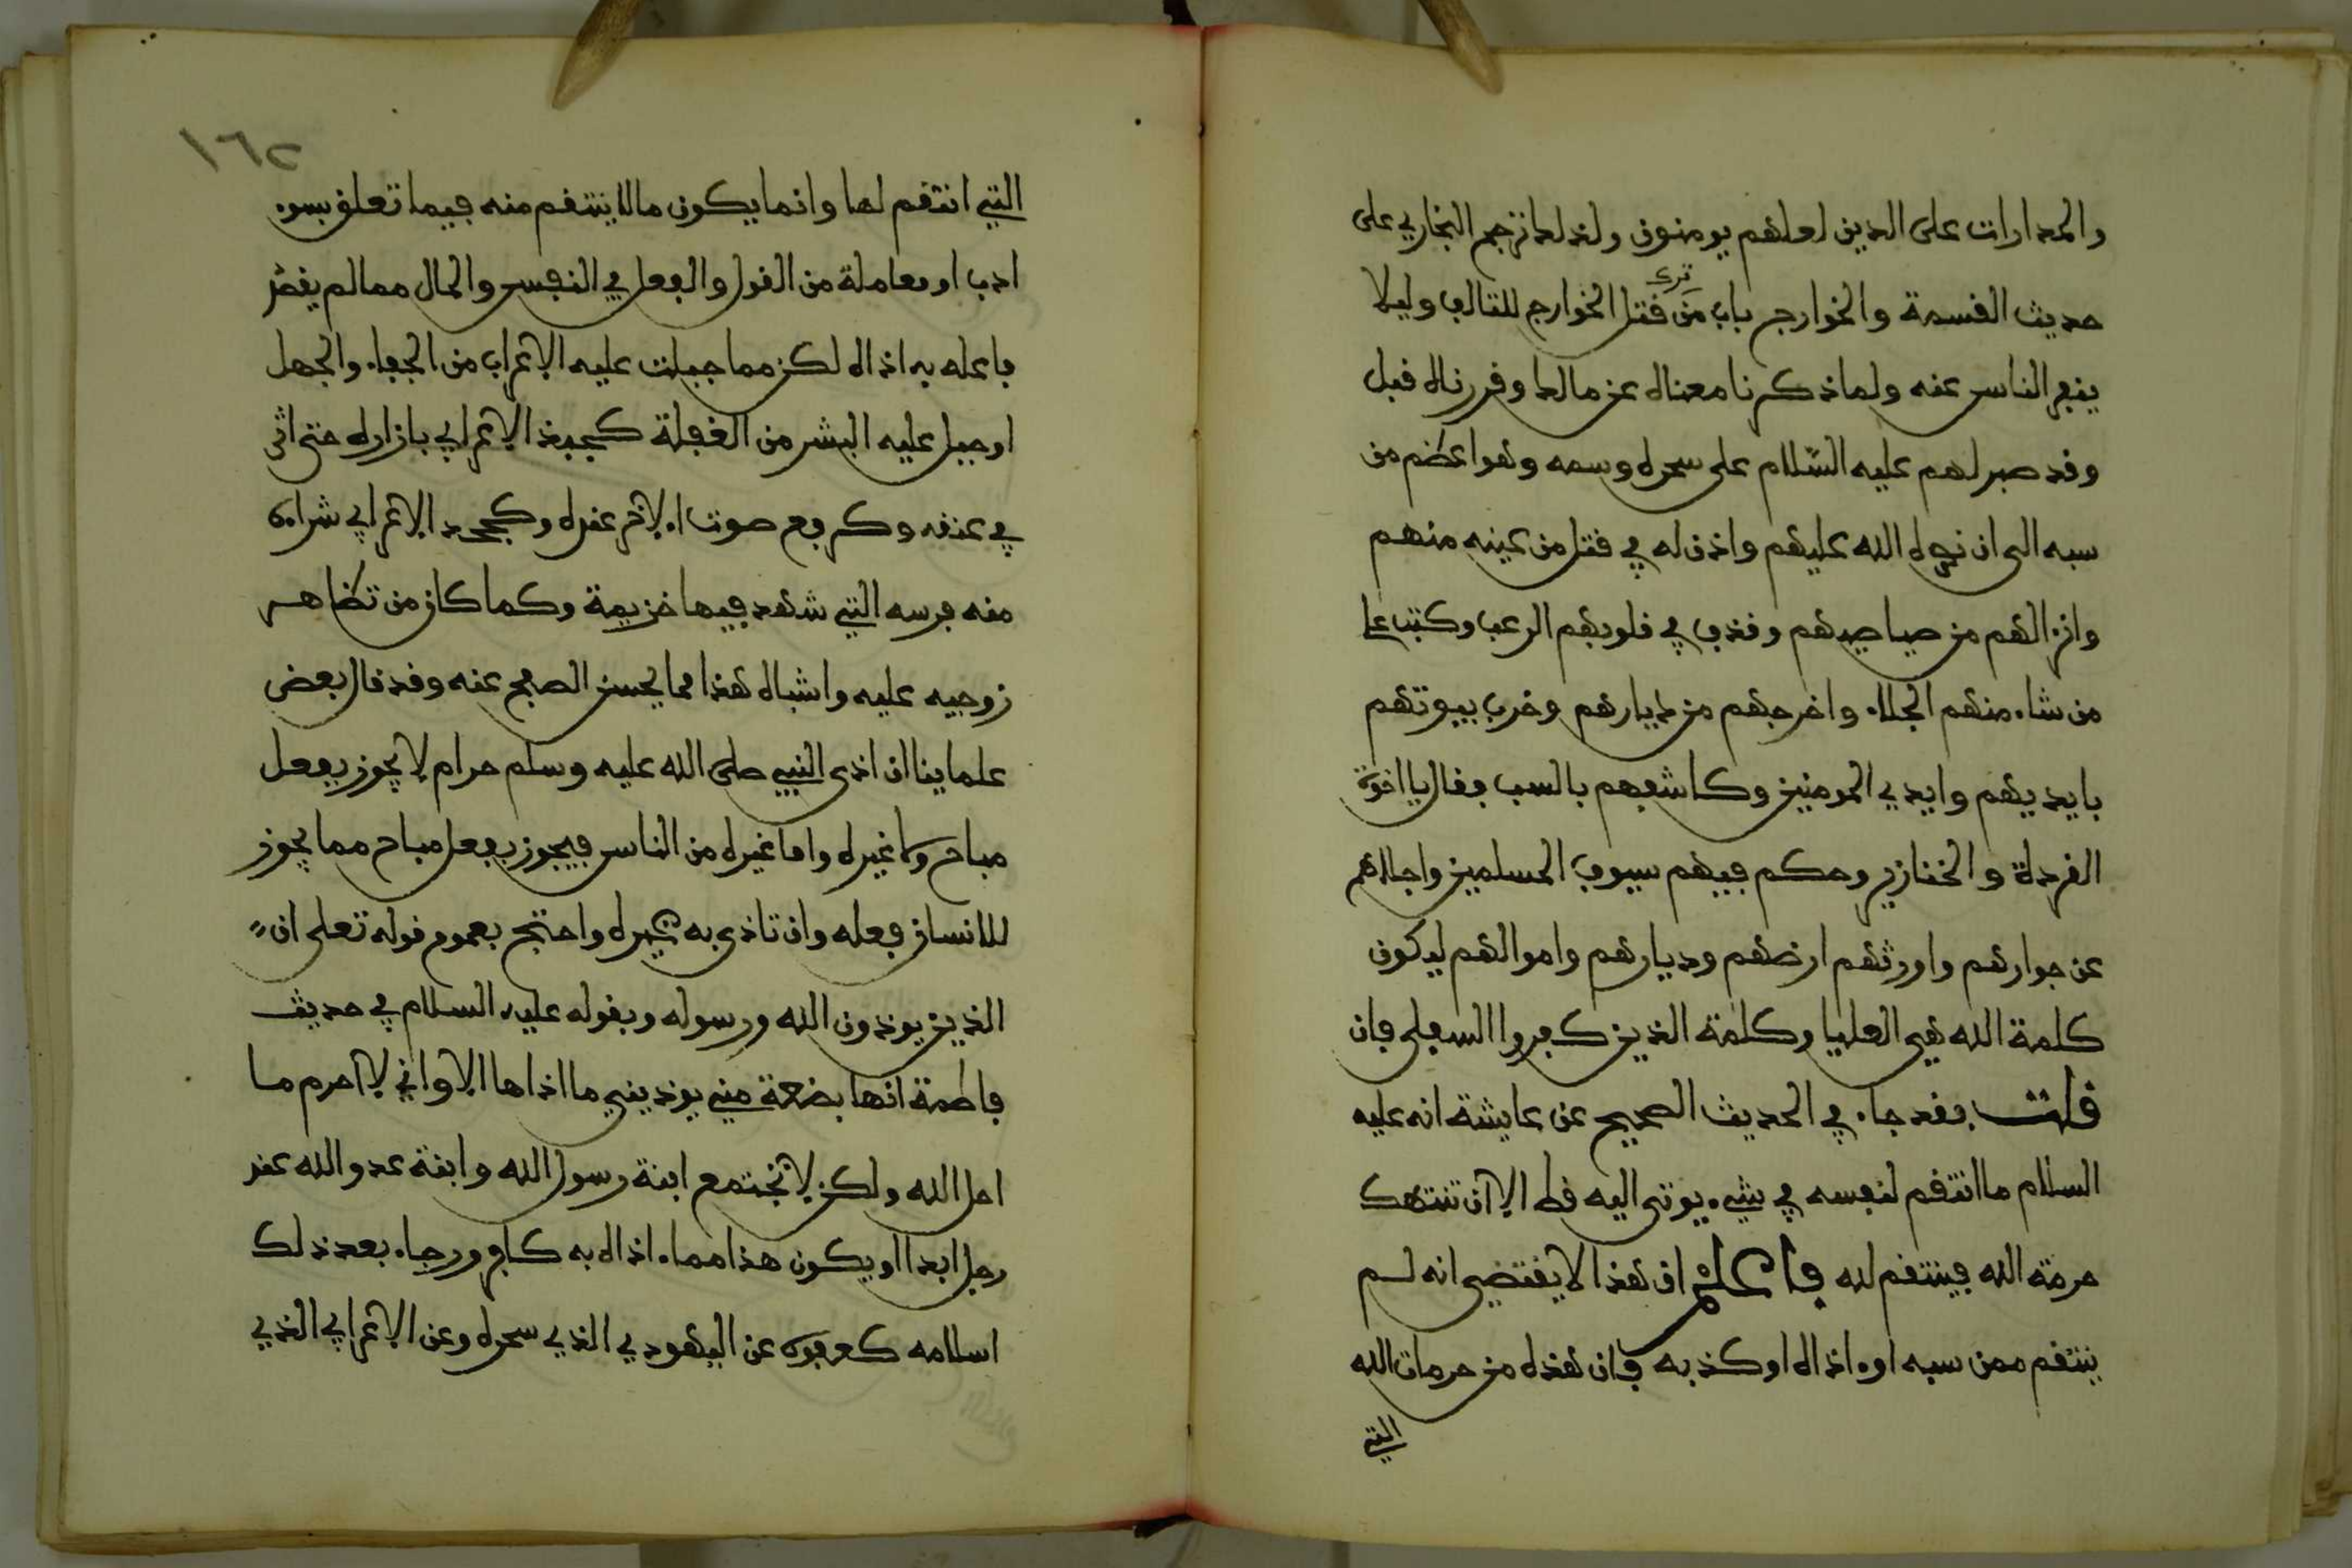 والمدارات على الدين لعلهم يومنون ولذلك ترجم البخاري على
حديث القسمة والخوارج باب من ترك قتل الخوارج للتالف وليلا
ينفر الناس عنه ولما ذكرنا معناه عن مالك وقررناه قبل
وقد صبر لهم عليه السلام على سحره وسمه وهو اعظم من
سبه الى ان نصره الله عليهم واذن له في قتل من عينه منهم
وانزالهم من صياصيهم وقذف في قلوبهم الرعب وكتب على
من شاء منهم الجلاء واخرجهم من ديارهم وخرب بيوتهم
بايديهم وايدي المومنين وكاشفهم بالسب فقال يا اخوة
القردة والخنازير وحكم فيهم سيوف المسلمين واجلاهم
عن جوارهم واورثهم ارضهم وديارهم واموالهم ليكون
كلمة الله هي العليا وكلمة الذين كفروا السفلى فان
قلت فقد جاء في الحديث الصحيح عن عايشة انه عليه
السلام ما انتقم لنفسه في شيء يوتى اليه قط الا ان تنتهك
حرمة الله فينتقم لله فاعلم ان هذا لا يقتضي انه لم
ينتقم ممن سبه او اذاه او كذبه فان هذه من حرمات الله
التي
١٦٢
التي انتقم لها وانما يكون مالا ينتقم منه فيما تعلق بسوء
ادب او معاملة من القول والفعل في النفس والمال ممالم يقصد
فاعله به اذاه لكن مما جبلت عليه الاعراب من الجفاء والجهل
او جبل عليه البشر من الغفلة كجبذ الاعرابي بازاره حتى اثر
في عنقه وكرفع صوت الاخر عنده وكجحد الاعرابي شراءه
منه فرسه التي شهد فيها خزيمة وكما كان من تظاهر
زوجيه عليه واشباه هذا مما يحسن الصفح عنه وقد قال بعض
علماينا ان اذى النبي صلى الله عليه وسلم حرام لا يجوز بفعل
مباح ولا غيره واما غيره من الناس فيجوز بفعل مباح مما يجوز
للانسان فعله وان تاذى به غيره واحتج بعموم قوله تعلى ان
الذين يوذون الله ورسوله وبقوله عليه السلام في حديث
فاطمة انها بضعة مني يوذيني ما اذاها الا واني لا احرم ما
احل الله ولكن لا تجتمع ابنة رسول الله وابنة عدو الله عند
رجل ابدا او يكون هذا مماء اذاه به كافر ورجاء بعد ذلك
اسلامه كعفوه عن اليهودي الذي سحره وعن الاعرابي الذي